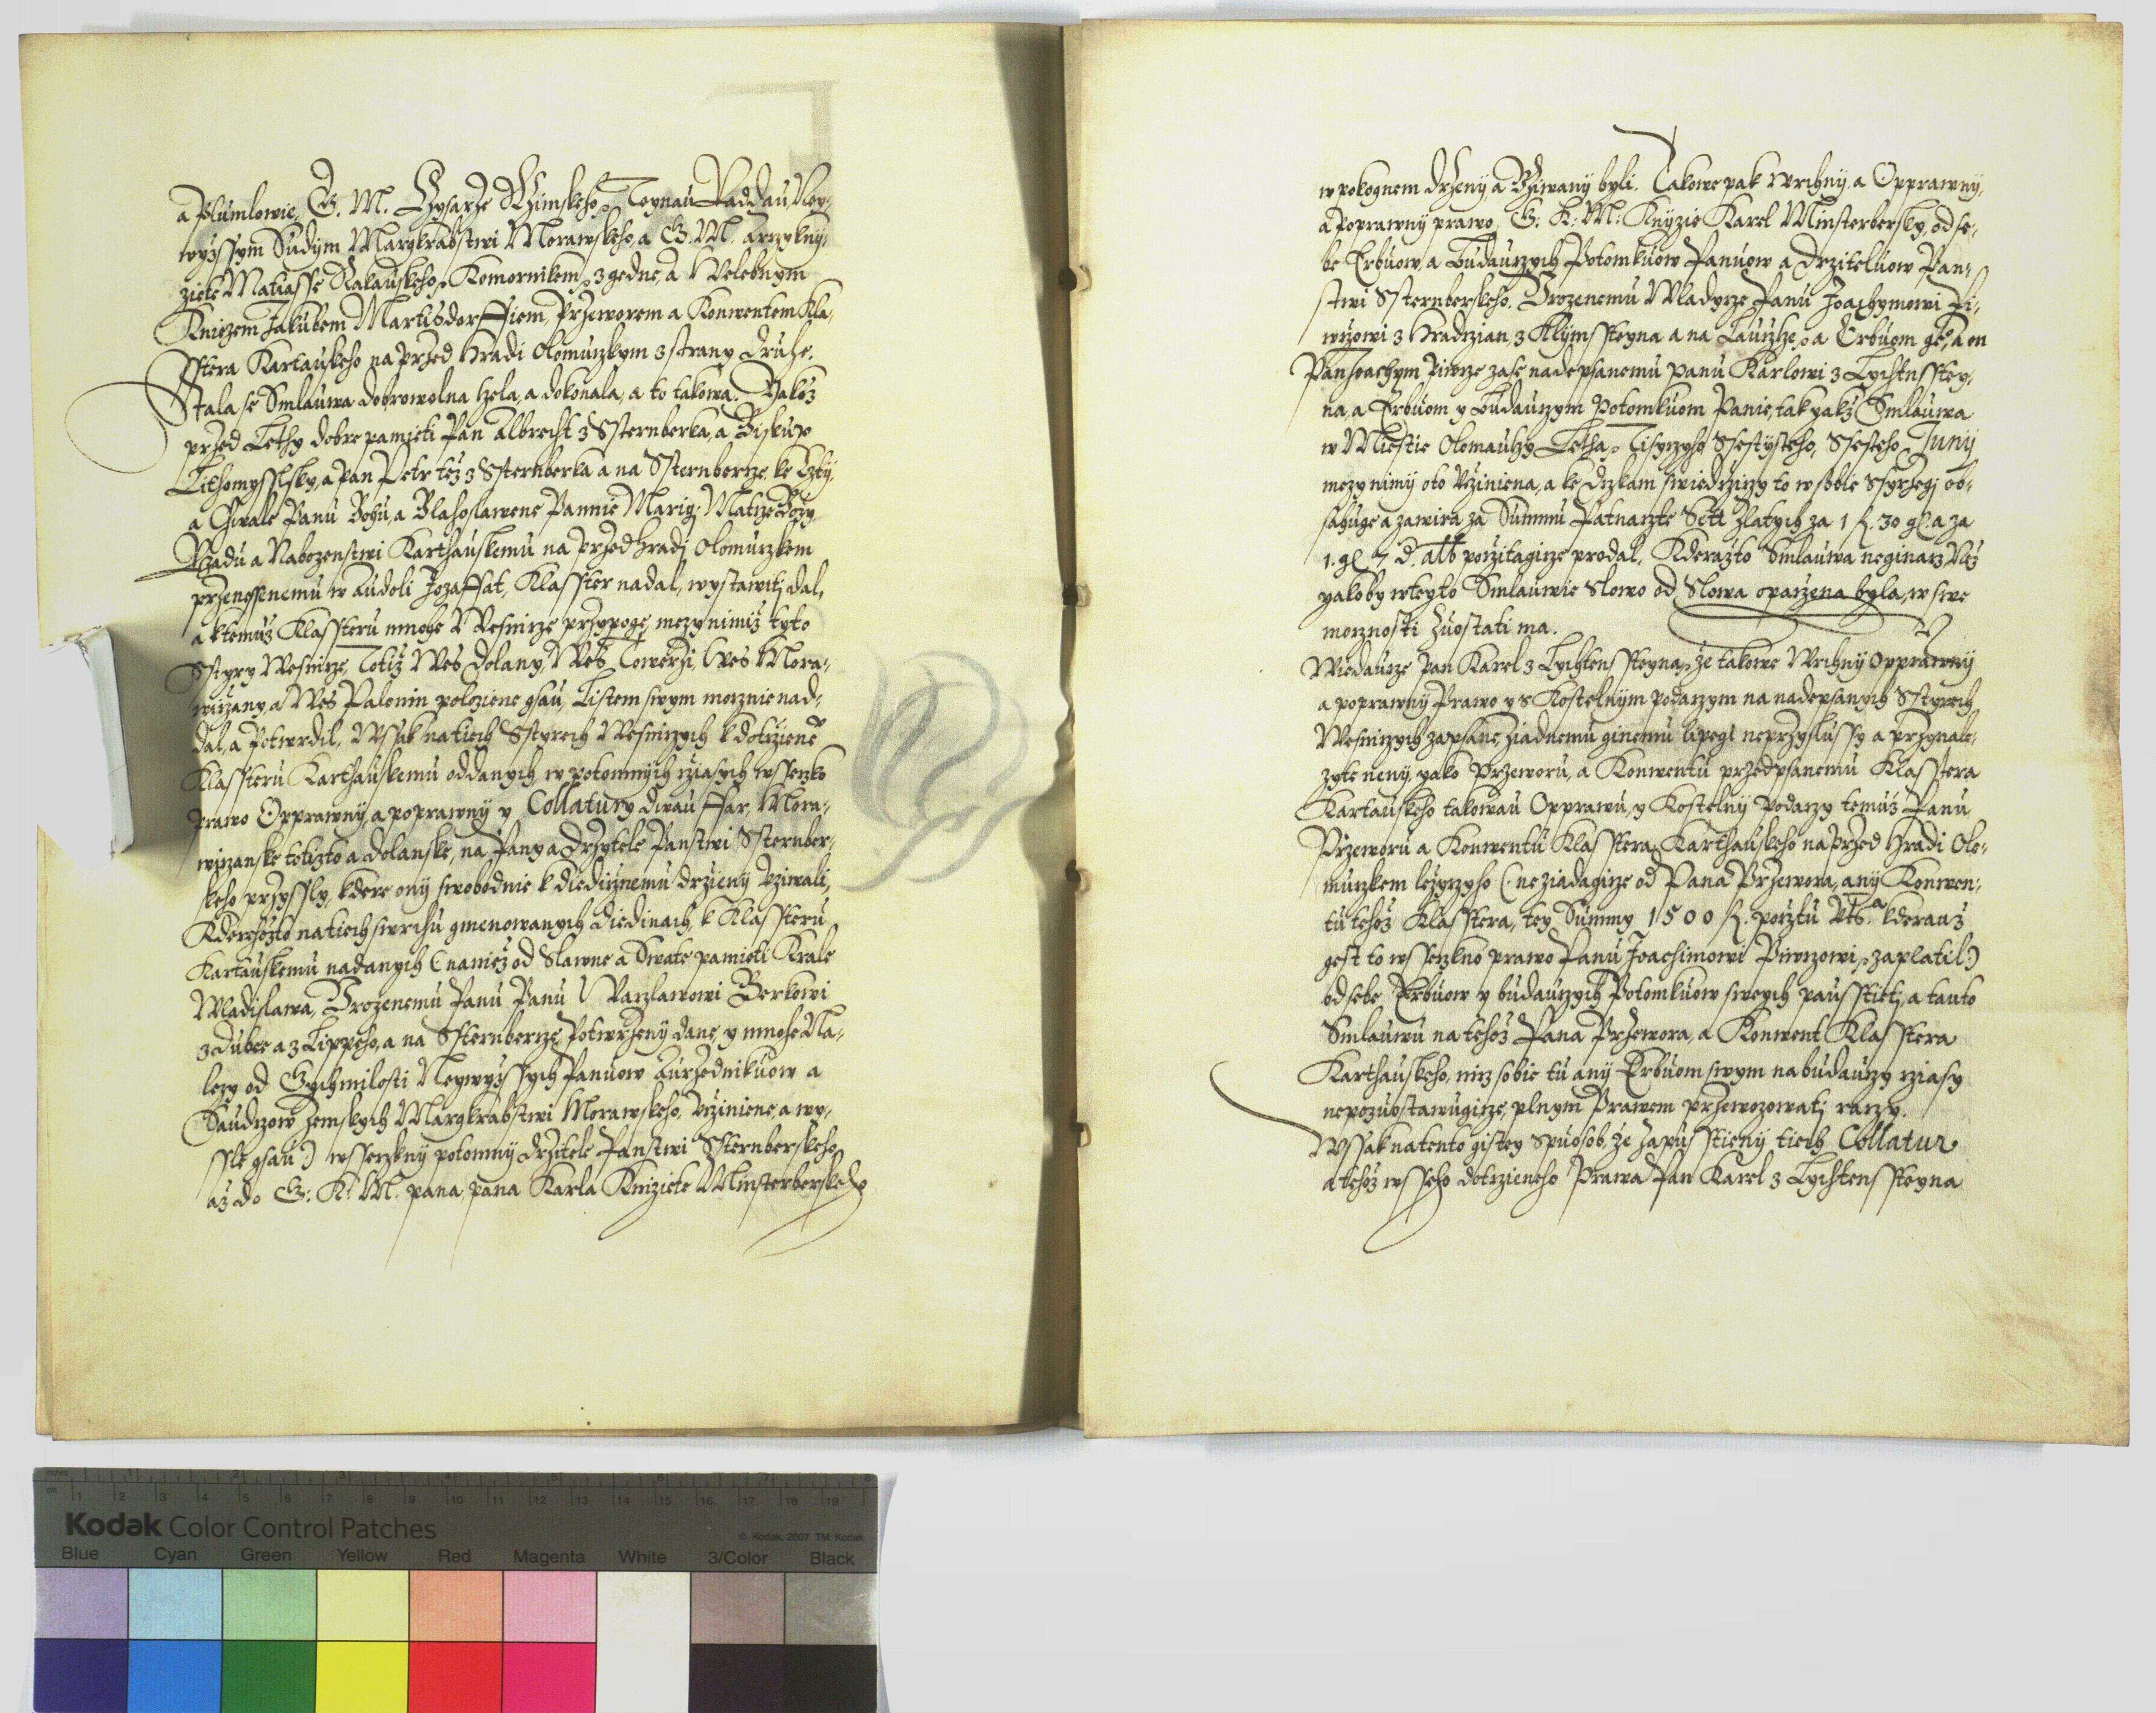 a Plumlowie, G. M. Czysarze Rzimskeho, Teynau Raddau, Ney-
wyzssym Sudym Margkrabstwi Morawskeho, a G. M. arczykny-
ziete Matiasse Rakauskeho, Komornikem, z gedne, a Welebnym
Kniezem Jakubem Martisdorffiem, Przeworem a Konwentem Kla-
sstera Kartauskeho na Przed Hradi Olomuczkym z strany druhe.
Stala se Smlauwa dobrowolna czela, a dokonala, a to takowa. Yakoz
przed Lethy dobre pamieti Pan Albrecht z Sternberka, a Biskup
Lithomysslsky, a Pan Petr tez z Sternberka a na Sternberze, ke Czty,
a Chwale Panu Bohu, a Blahoslawene Pannie Marigi Matcze Bozy,
Rzadu a Nabozenstwi Karthauskemu na Przedhradj Olomuczkem
przenessenemu w audoli Jozaffat, Klasster nadal, wystawitj dal,
a ktemuz Klassteru mnoge Wesnicze przypogil, mezy nimiz tyto
Sstyry Wesnicze, Totiz Wes Dolany, Wes Towerzi, Wes Mora-
wiczany a Wes Palonin polozene gsau, Listem swym mocznie nad-
dal, a Potwrdil, Wssak na tiech Sstyrech Wesniczych k dotcziene°
Klassteru Karthauskemu oddanych w potomnych cziasych wssecko
Prawo Opprawny, a poprawny y Collatury dwau ffar, Mora-
wiczanske totizto a dolanske, na Pany a Drzytele Panstwi Sternber-
skeho przyssly, kdere ony swobodnie k diedicznemu drzieny vziwali,
Kderehozto na tiech swrchu gmenowanych diedinach, k Klassteru
Kartauskemu nadanych (na niez od Slawne a Swate pamieti Krale
Wladislawa, Urozenemu Panu Panu Waczlawowi Berkowi
z Dubee a z Lippeho, a na Sternbercze, Potwrzeny dane, y mnohe Na-
lezy od Gych milosti Neywyzssych Panuow aurzednikuow a
Saudczow zemskych Margkrabstwi Morawskeho, vcziniene, a wy-
ssle gsau) wssecky potomny drzitele Panstwi Sternberskeho
az do G: K: M. pana pana Karla Kniziete Minsterberskeho
w pokognem drzeny, a vziwany byli. Takowe pak Wrchny a Opprawny,
a Poprawny prawo, G: K: M: Knyzie Karel Minstersky, od se-
be Erbuow, a Buduczych Potomkuow Panuow a Drzitelúow Pan-
stwi Ssternberskeho. Urozenemu Wladycze Panu Joachymowi Pi-
wczowi z Hradczian, z Klymssteyna a na Lauczce, a Erbuom ge°, a on
Pan Joachym Piwcze zase nadepsanemu panu Karlowi z Lychtnsstey-
na, a Erbuom y Budauczym Potomkuom Panie, tak yakz Smlauwa
w Miestie Olomauczy Letha Tisyczyho Ssestysteho, Ssesteho Junij
mezy nimy oto Vcziniena, a ke Dczkam swiedczizy to w sobie Ssyrzegj ob-
sahuge a zawira za Summu Patnaczte Sett zlatych za 1 fl. 30 gl. a za
1. gl. 7 d. alb pocztagicze prodal, Kderazto Smlauwa neginacz Nez
yakoby wteyto Smlauwie Slowo od Slowa opaczena byla, w swe
mocznosti zuostati ma.
Wiedaucze Pan Karel z Lychtenssteyna, ze takowe Wrchny Opprawny
a poprawny Prawo y s Kostelnym podaczym na nadepsanych Sstyrech
Wesniczych zapsane, ziadnemu ginemu lipegi neprzyslussy a przynale-
zyte neny, yako Przeworu, a Konwentu przedpsanemu Klasstera
Kartauskeho takowau Opprawu, y Kostelny podaczy temuz Panu
Przeworu a Konwentu Klasstera Karthauskeho na Przed Hradi Olo-
muczkem lezyczyho (ne ziadagicze od Pana Przewora, any Konwen-
tu tehoz Klasstera, tey Summy 1500 fl. pocztu Vts.a kderauz
gest to wsseczkno prawo Panu Joachimowi Piwczowi, zaplatil)
od sebe, Erbuow y budauczych Potomkuow swych pausstietj, a tauto
Smlauwu na tehoz Pana Przewora, a Konwent Klasstera
Karthauskeho, nicz sobie tu any Erbuom swym na budauczy cziasy
nepozuostawugicze, plnym Prawem przewozowatj raczy.
Wssak na tento gistey spuosob, ze Zapusstieny tiech Collatur
a tehoz wsseho dotczieneho Prawa Pan Karel z Lychtenssteyna